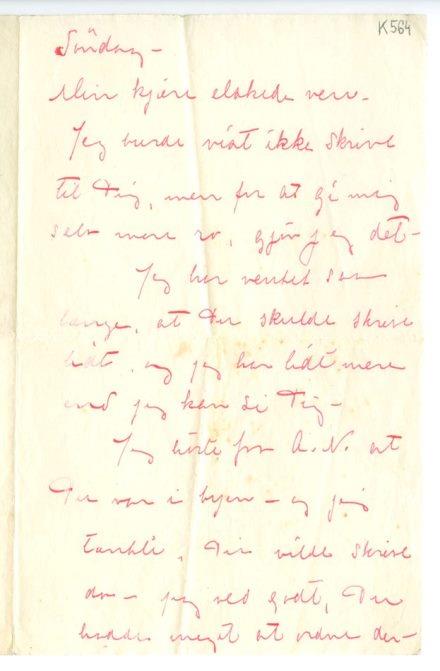 K564
Söndag –
Min kjære elskede ven –
Jeg burde vist ikke skrive
til Dig, men for at gi mig
selv mere ro, gjør jeg det –
Jeg har ventet saa
længe, at Du skulde skrive
lidt, og jeg har lidt mere
end jeg kan si Dig –
Jeg hörte fra A. N. at
Du var i byen – og jeg
tænkte, Du vilde skrive
da – jeg ved godt, Du
hadde meget at ordne der –